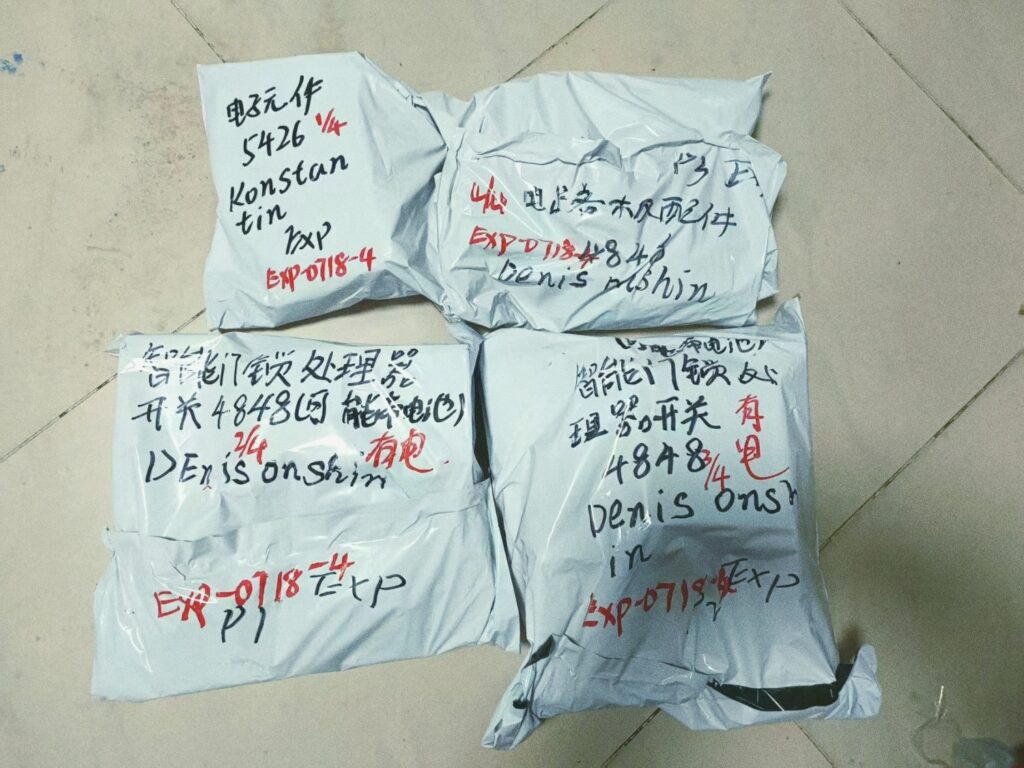 电子元件
5426 1/4
Konstan
tin
Exp
EXP-0718-4
P3 E
4/4 电 板配件
EXP-0718-4 4848
Denis
智能门锁处理器
开关4848(可能带电池)
2/4 有电
DEnis onshin
EXP-0718-4 Exp
P1
带电池)
智能门锁处
理器开关 有
4848 3/4 电
Denis onsh
in
EXP-0718 Exp